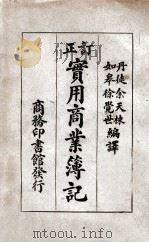 丹徒余天栋
如皋徐覺世
編譯
訂正
實用商業簿記
商務印書館發行